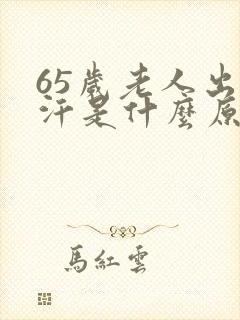 65歲老人出
汗是什麼原
馬紅雲